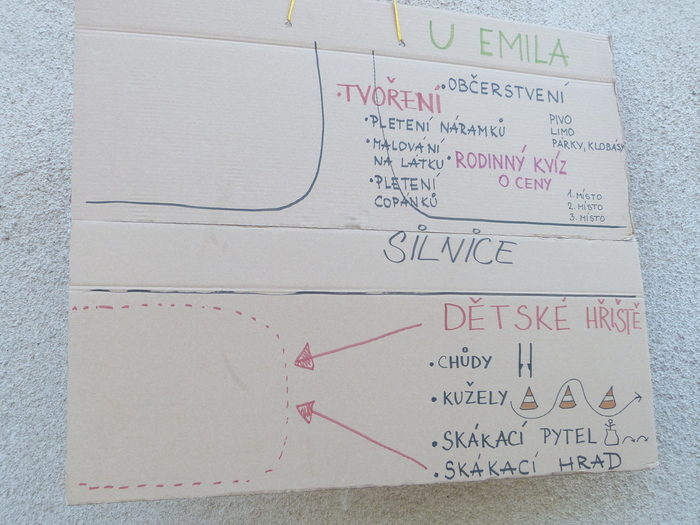 U EMILA
•OBČERSTVENÍ
PIVO
LIMO
PÁRKY, KLOBÁSY
•TVOŘENÍ
•PLETENÍ NÁRAMKŮ
•MALOVÁNÍ
NA LÁTKU
•PLETENÍ
COPÁNKŮ
•RODINNÝ KVÍZ
O CENY
1. MÍSTO
2. MÍSTO
3. MÍSTO
SILNICE
DĚTSKÉ HŘIŠTĚ
•CHŮDY
•KUŽELY
•SKÁKACÍ PYTEL
•SKÁKACÍ HRAD